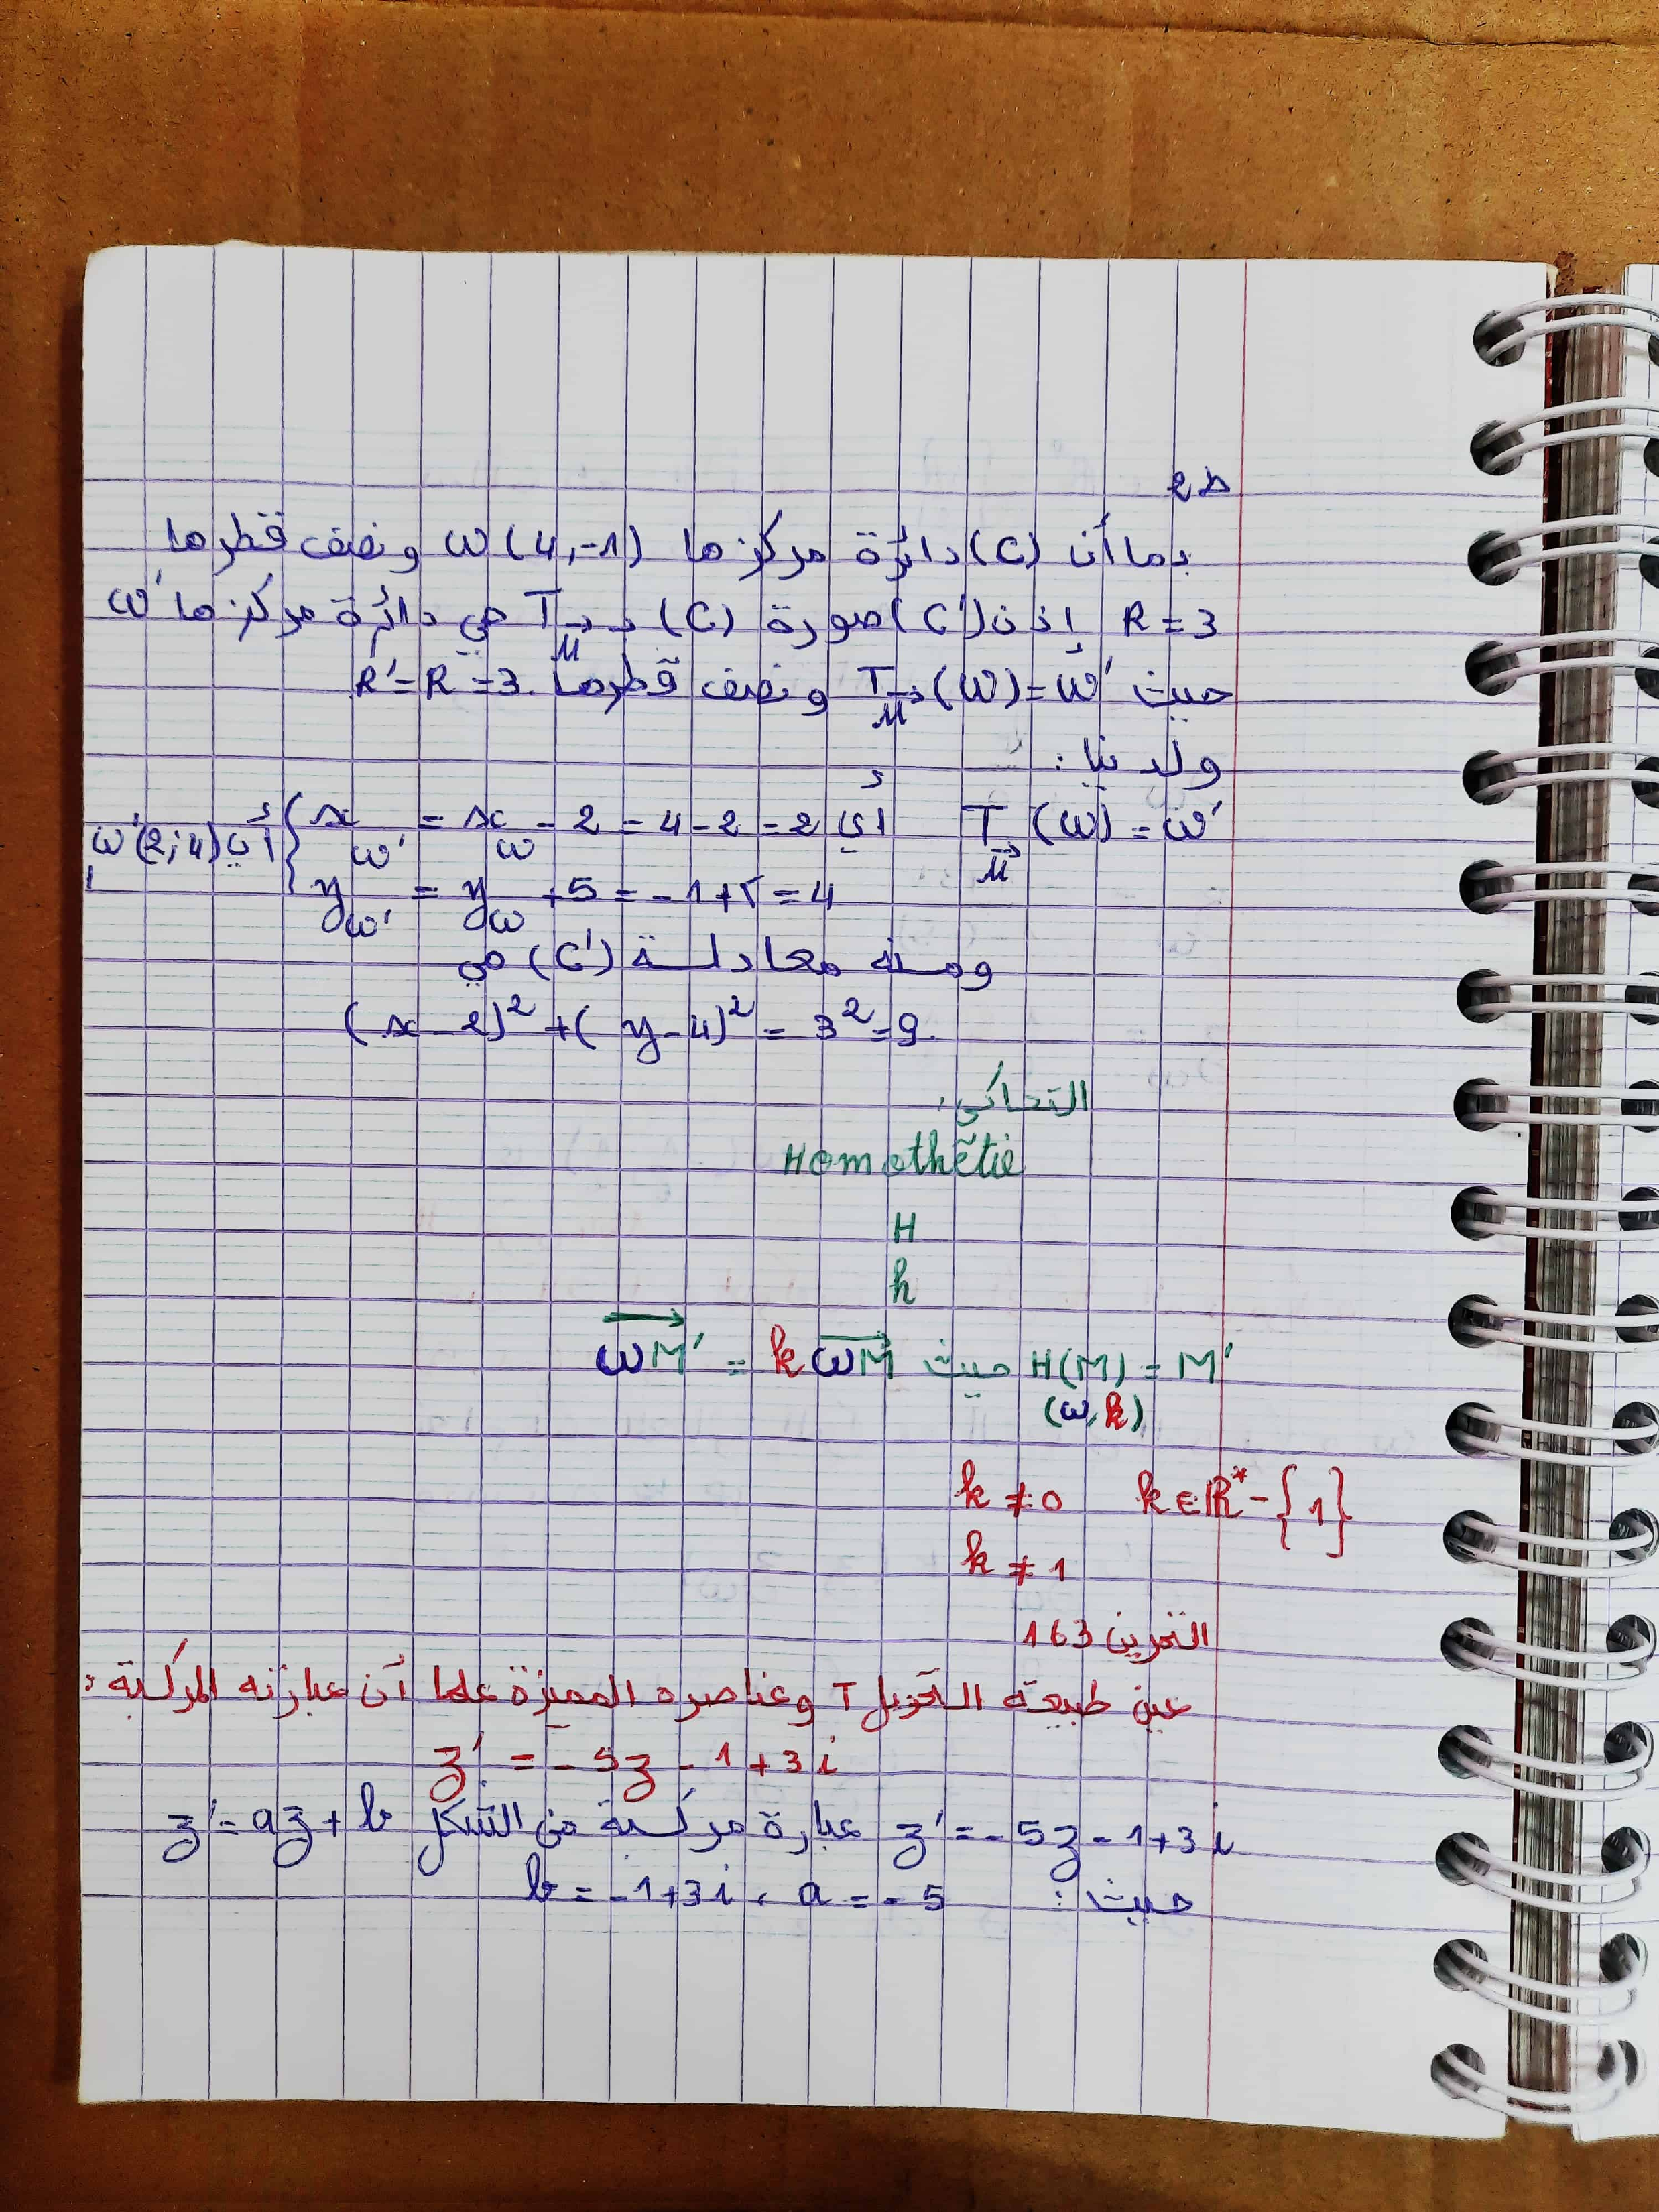 ط2
بما أن (C) دائرة مركزها ω(4,-1) ونصف قطرها
R = 3 إذن (C') صورة (C) بـ T_u⃗ هي دائرة مركزها ω'
حيث T_u⃗(ω) = ω' ونصف قطرها R' = R = 3.
ولدينا:
T_u⃗(ω) = ω' أي { x_ω' = x_ω - 2 = 4 - 2 = 2 أي ω'(2;4)
y_ω' = y_ω + 5 = -1 + 5 = 4
ومنه معادلة (C') هي
(x - 2)² + (y - 4)² = 3² = 9.
التحاكي:
Homothētie
H
h
H(M) = M' حيث ωM'⃗ = k ωM⃗
(ω, k)
k ≠ 0 k ∈ ℝ* - {1}
k ≠ 1
التمرين 163
عين طبيعته التحويل T وعناصره المميزة علما أن عبارته المركبة:
z' = -5z - 1 + 3i
z' = -5z - 1 + 3i عبارة مركبة من الشكل z' = az + b
حيث: a = -5، b = -1 + 3i